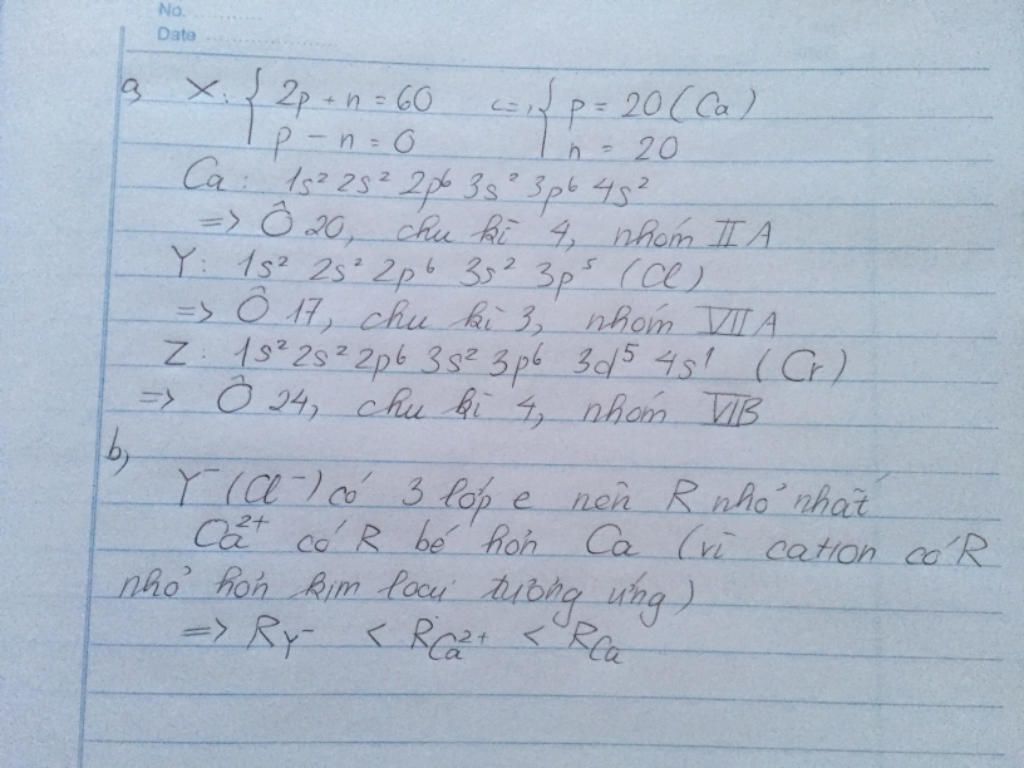 No. ............
Date ........................
a, X: { 2p + n = 60 <=> { p = 20 (Ca)
p - n = 0 n = 20
Ca: 1s² 2s² 2p⁶ 3s² 3p⁶ 4s²
=> Ô 20, chu kì 4, nhóm IIA
Y: 1s² 2s² 2p⁶ 3s² 3p⁵ (Cl)
=> Ô 17, chu kì 3, nhóm VIIA
Z: 1s² 2s² 2p⁶ 3s² 3p⁶ 3d⁵ 4s¹ (Cr)
=> Ô 24, chu kì 4, nhóm VIB
b,
Y⁻ (Cl⁻) có 3 lớp e nên R nhỏ nhất
Ca²⁺ có R bé hơn Ca (vì cation có R
nhỏ hơn kim loại tương ứng)
=> R_Y⁻ < R_Ca²⁺ < R_Ca